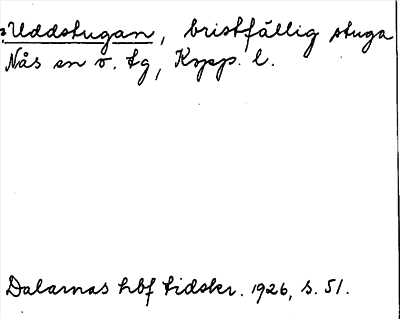 Uddstugan, bristfällig stuga
Nås sn o. tg, Kopp. l.
Dalarnas hbf tidskr. 1926, s. 51.